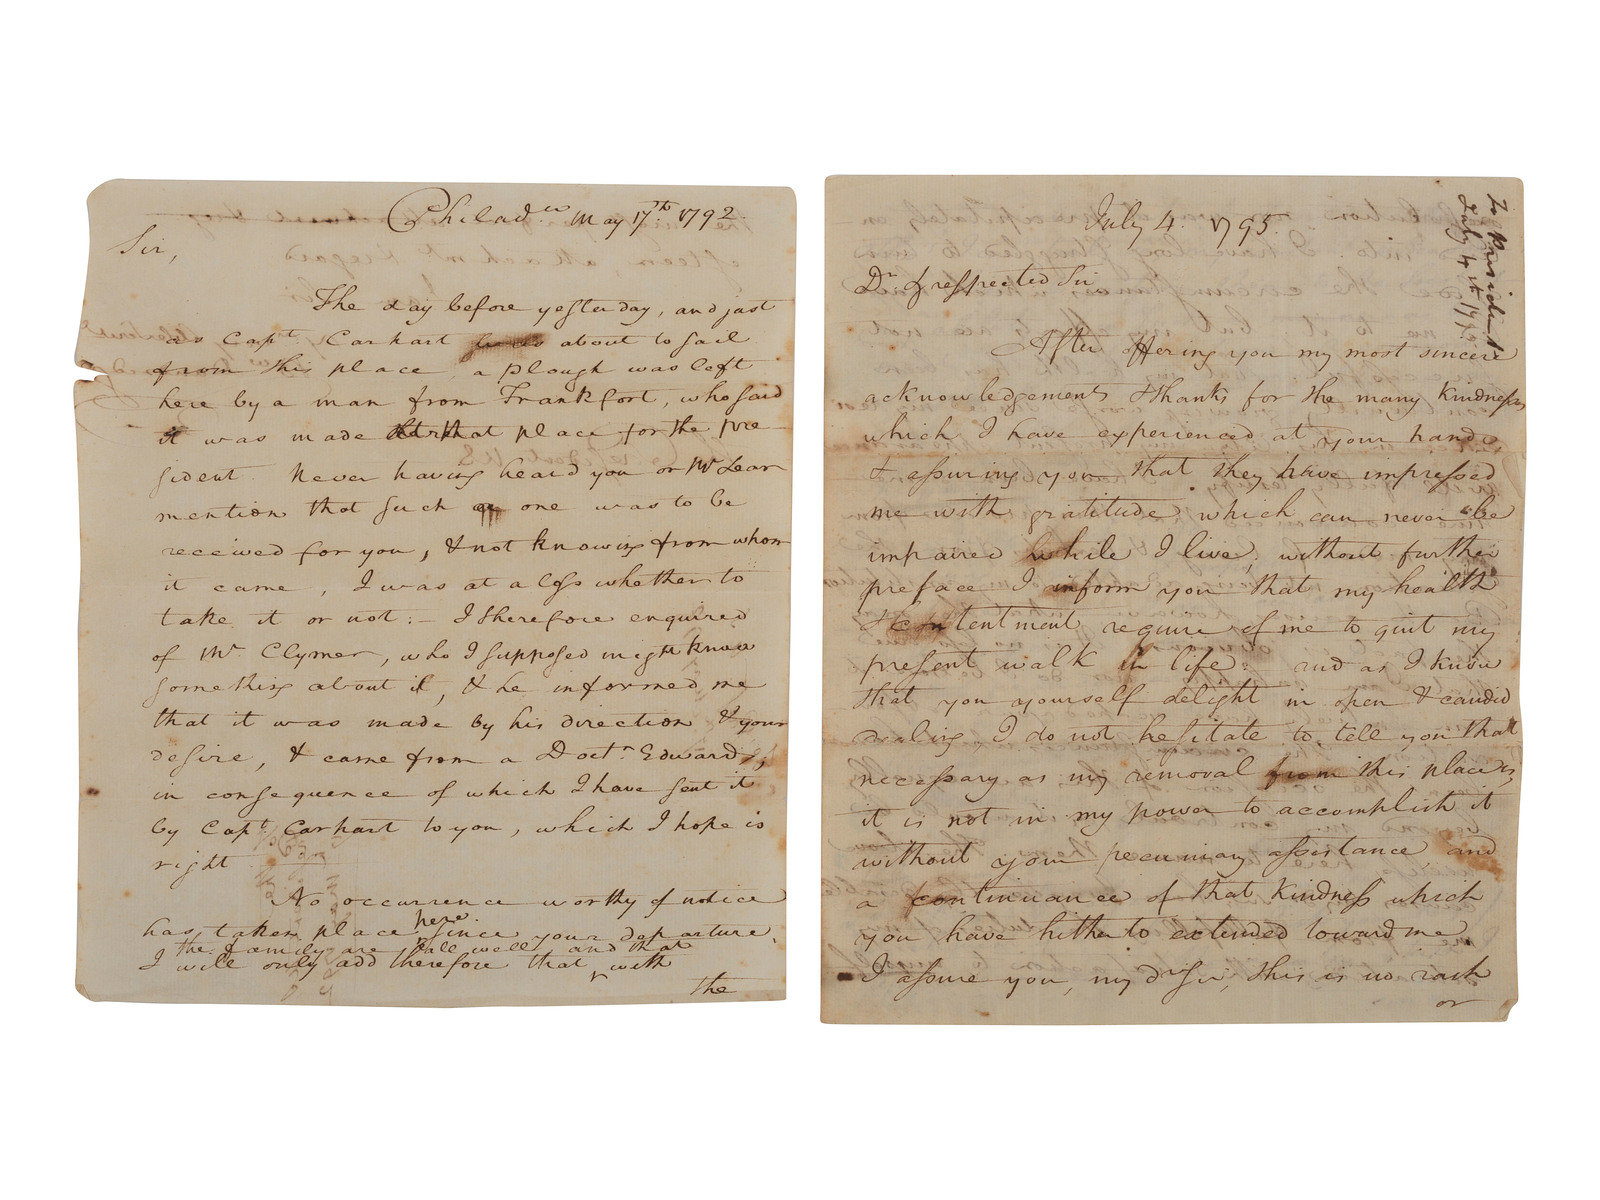 Philad.ia May 17th. 1792.
Sir,
The day before yesterday, and just
as Capt. Carhart was about to sail
from this place, a plough was left
here by a man from Frankfort, who said
it was made at that place for the pre-
sident. Never having heard you or Mr Lear
mention that such a one was to be
received for you, & not knowing from whom
it came, I was at a loss whether to
take it or not:– I therefore enquired
of Mr. Clymer, who I supposed might know
something about it, & he informed me
that it was made by his direction & your
desire, & came from a Doctr. Edwards,
in consequence of which I have sent it
by Capt. Carhart to you, which I hope is
right
No occurrence worthy of notice
has taken place here since your departure.
the family are all well, and that
I will only add therefore that with
the
July 4. 1795.
To President
July 4th 1795
Dr. & respected Sir
After offering you my most sincere
acknowledgements & thanks for the many kindnesses
which I have experienced at your hands
& assuring you that they have impressed
me with gratitude which can never be
impaired while I live, without further
preface I inform you that my health
& contentment require of me to quit my
present walk in life: and as I know
that you yourself delight in open & candid
dealing, I do not hesitate to tell you that
necessary as my removal from this place is,
it is not in my power to accomplish it
without your pecuniary assistance, and
a continuance of that kindness which
you have hitherto extended toward me
I assure you, my dr Sir, this is no rash
or